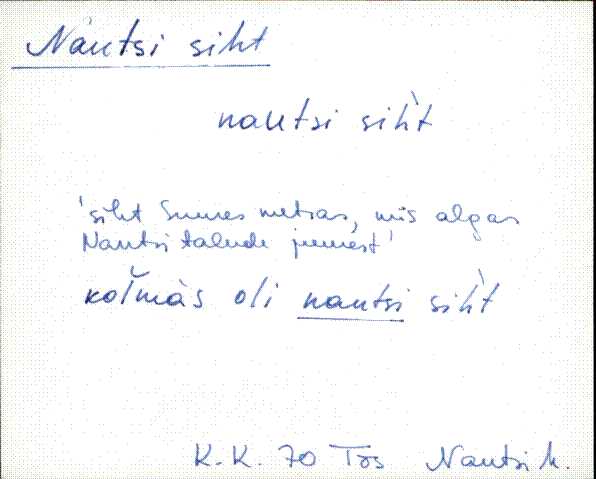 Nautsi siht
nautsi sih̀t
'siht Suures metsas, mis algas
Nautsi talude juurest'
kol̆màs oli nautsi sih̀t
K.K. 70 Tõs Nautsi k.